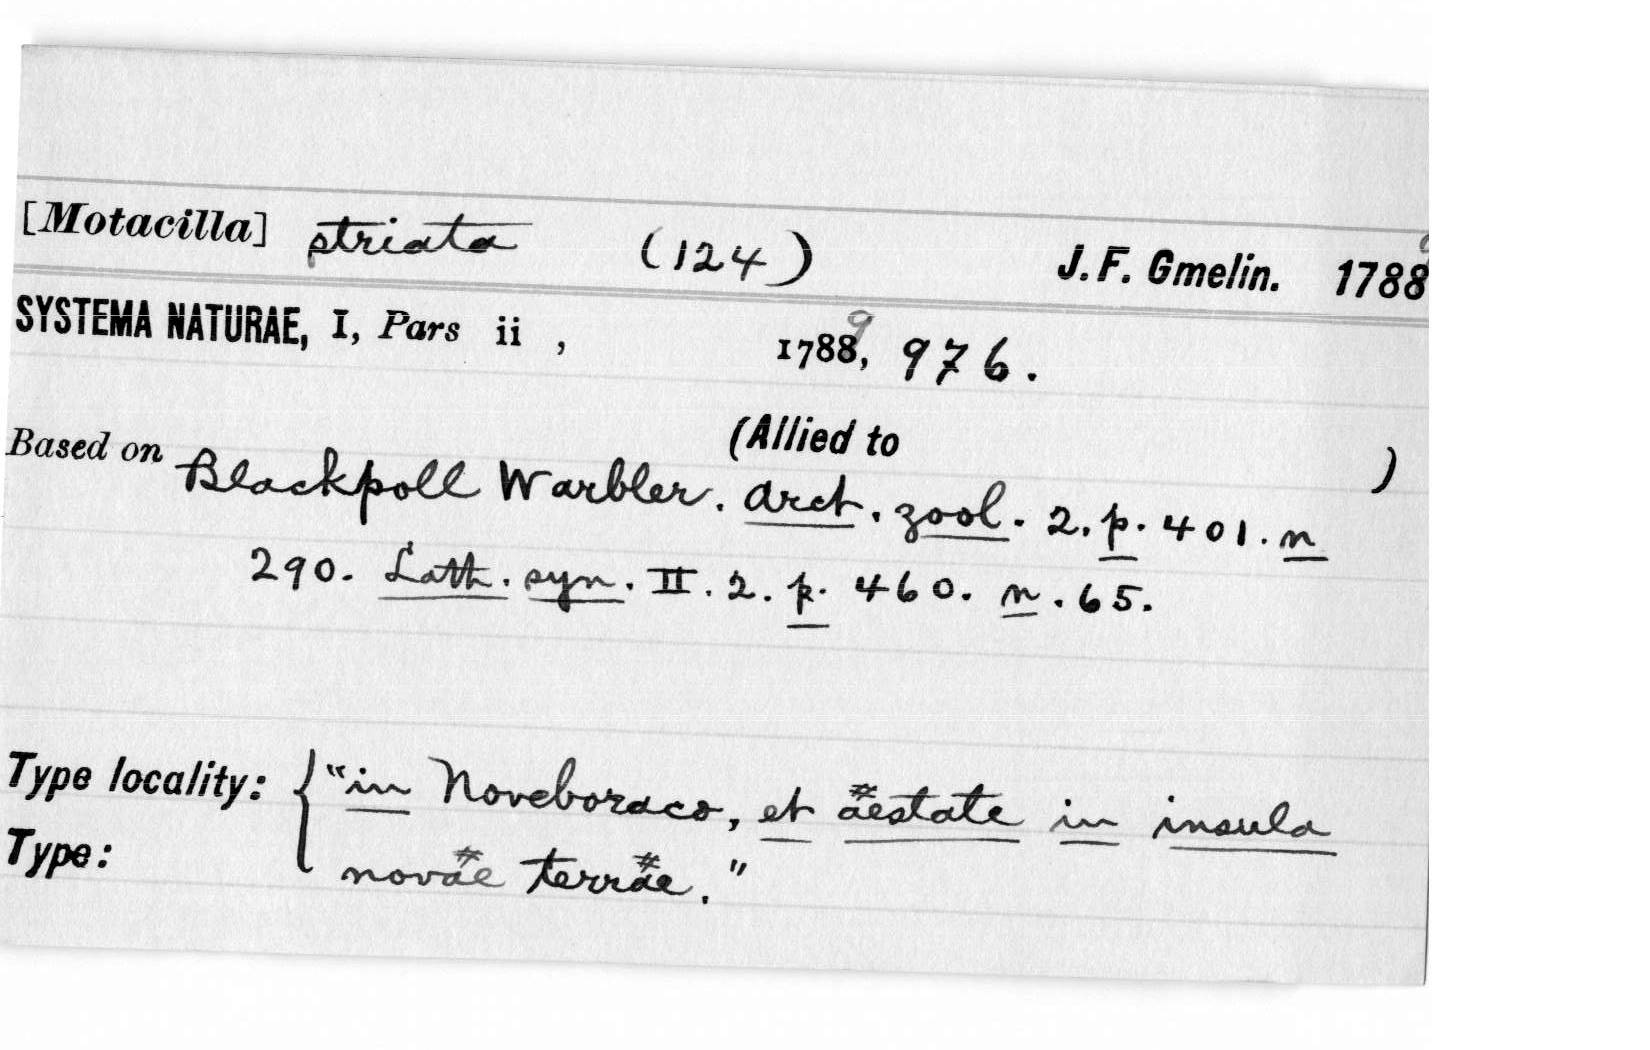 [Motacilla] striata (124) J. F. Gmelin. 1788
SYSTEMA NATURAE, I, Pars ii , 1788, 9 976.
(Allied to )
Based on Blackpoll Warbler. Arct. zool. 2. p. 401. n
290. Lath. syn. II. 2. p. 460. n. 65.
Type locality: { "in Noveboraco, et aestate in insula
Type: novae terrae."